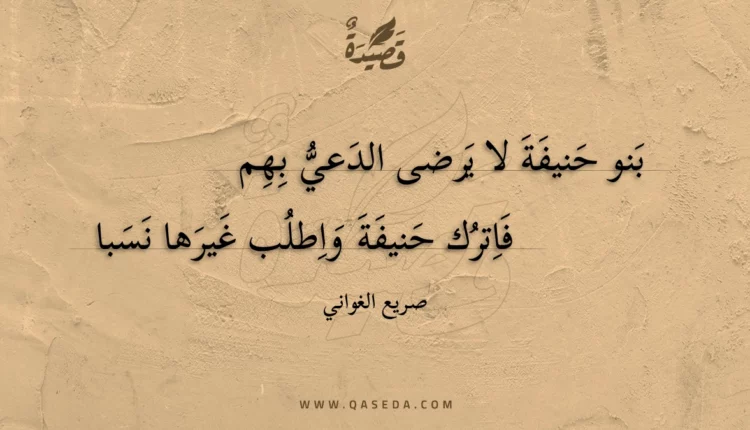 قَصِيْدَةٌ
بَنو حَنيفَةَ لا يَرضى الدَعيُّ بِهِم
فَاِترُك حَنيفَةَ وَاِطلُب غَيرَها نَسَبا
صريع الغواني
WWW.QASEDA.COM